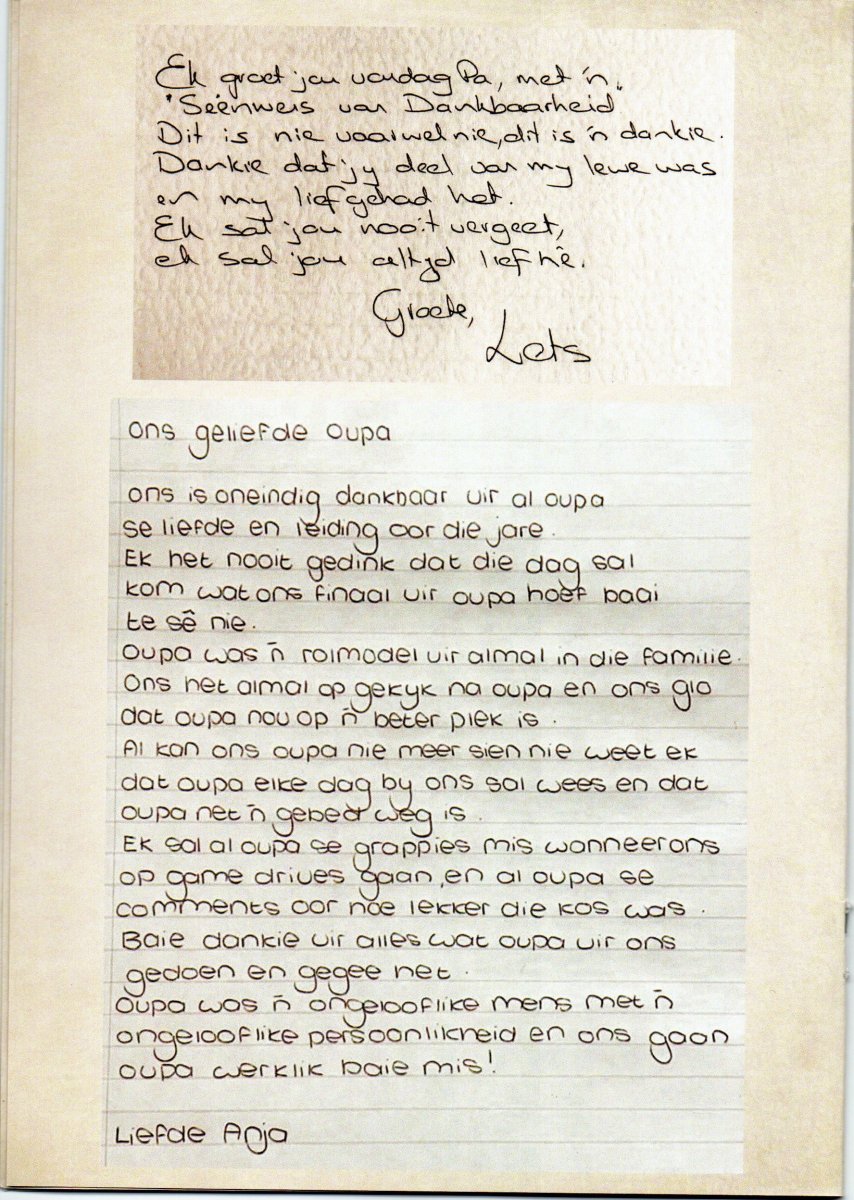 Ek groet jou vandag Pa, met 'n
'Seënwens van Dankbaarheid
Dit is nie vaarwel nie, dit is 'n dankie.
Dankie dat jy deel van my lewe was
en my liefgehad het.
Ek sal jou nooit vergeet,
ek sal jou altyd liefhê.
Groete,
Lets
Ons geliefde Oupa
Ons is oneindig dankbaar vir al oupa
se liefde en leiding oor die jare.
Ek het nooit gedink dat die dag sal
kom wat ons finaal vir oupa hoef baai
te sê nie.
Oupa was 'n rolmodel vir almal in die familie.
Ons het almal op gekyk na oupa en ons glo
dat oupa nou op 'n beter plek is.
Al kan ons oupa nie meer sien nie weet ek
dat oupa elke dag by ons sal wees en dat
oupa net 'n gebed weg is.
Ek sal al oupa se grappies mis wanneer ons
op game drives gaan, en al oupa se
comments oor hoe lekker die kos was.
Baie dankie vir alles wat oupa vir ons
gedoen en gegee het.
Oupa was 'n ongelooflike mens met 'n
ongelooflike persoonlikheid en ons gaan
oupa werklik baie mis!
Liefde Anja